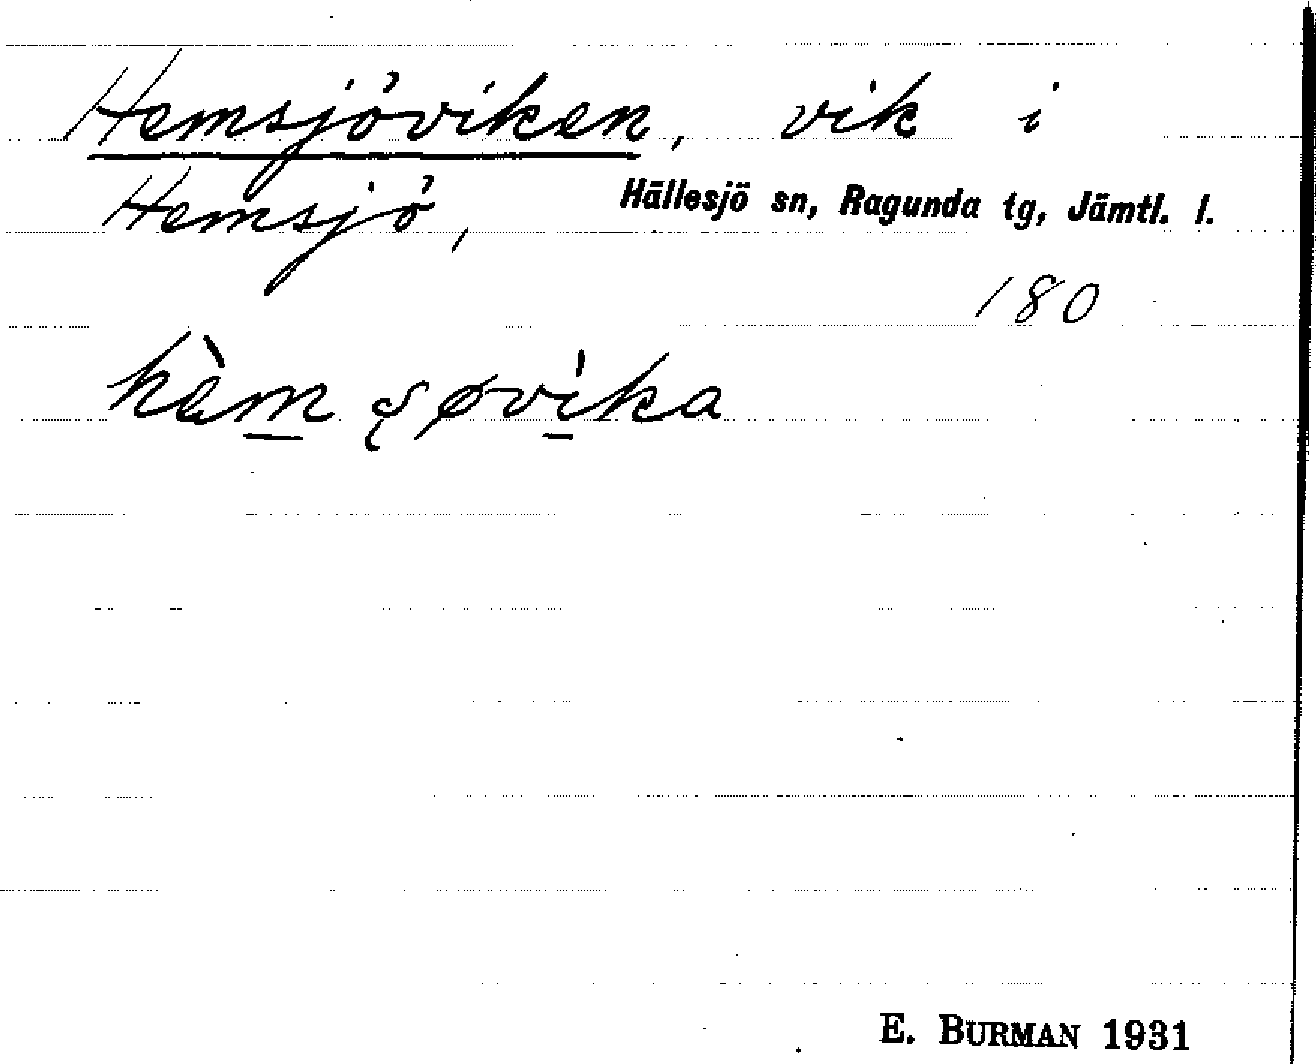 Hemsjöviken, vik i
Hemsjö, Hällesjö sn, Ragunda tg, Jämtl. l.
180
E. BURMAN 1931